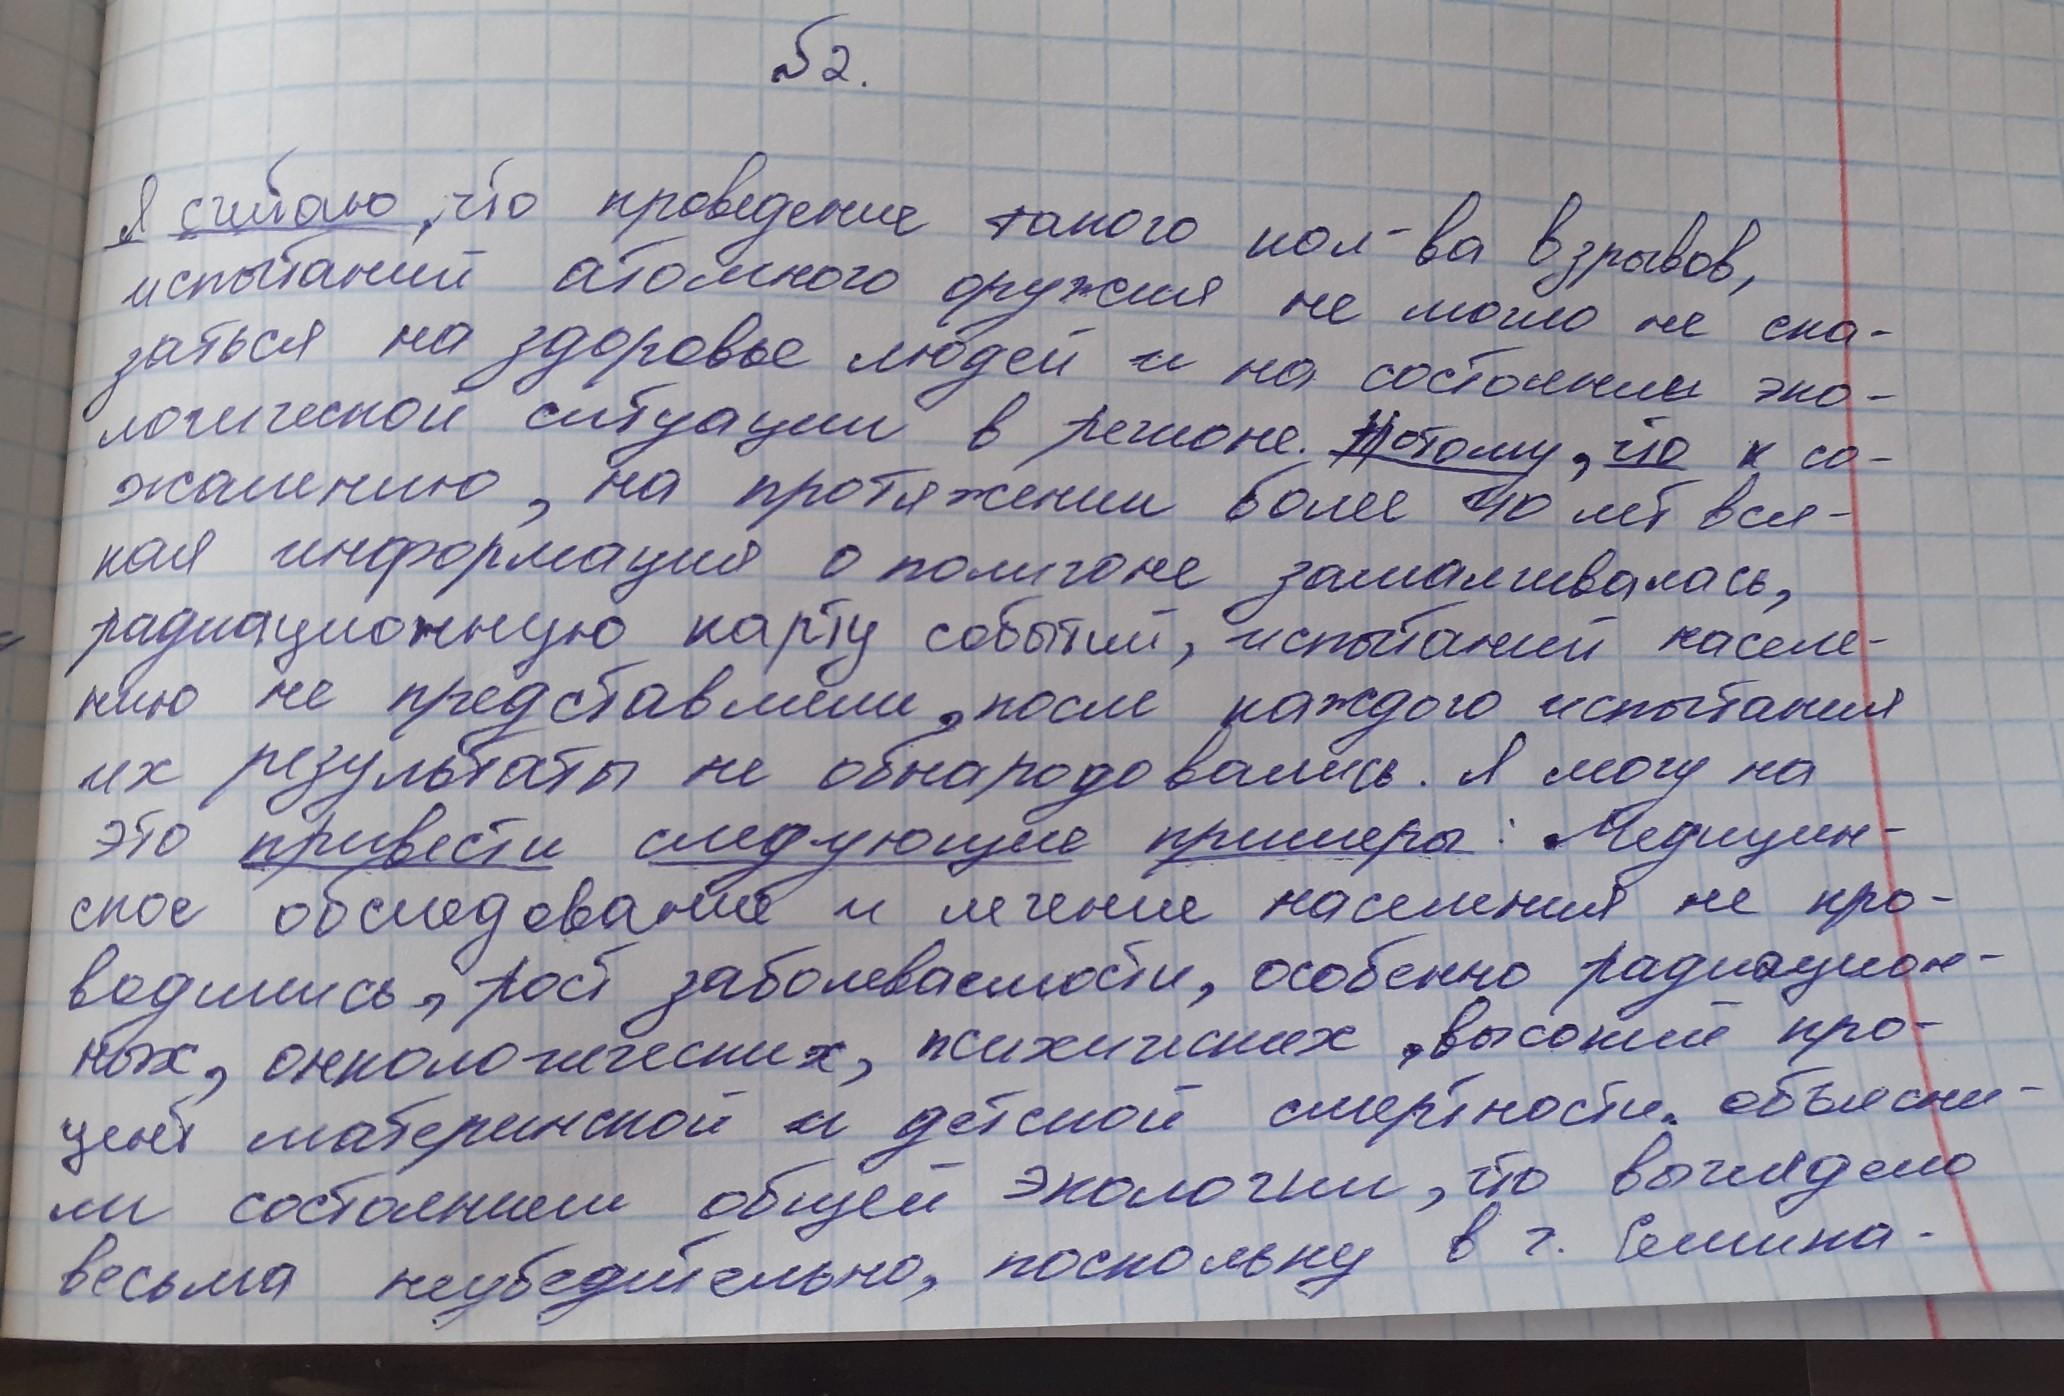 №2.
Я считаю, что проведение такого кол-ва взрывов,
испытаний атомного оружия не могло не ска-
заться на здоровье людей и на состоянии эко-
логической ситуации в регионе. Потому, что к со-
жалению, на протяжении более 40 лет вся-
кая информация о полигоне замалчивалась,
радиационную карту событий, испытаний населе-
нию не представляли, после каждого испытания
их результаты не обнародовались. Я могу на
это привести следующие примеры: Медицин-
ское обследование и лечение населения не про-
водились, рост заболеваемости, особенно радиацион-
ных, онкологических, психических, высокий про-
цент материнской и детской смертности. объясни-
ли состоянием общей экологии, что выглядело
весьма неубедительно, поскольку в г. Семипа-